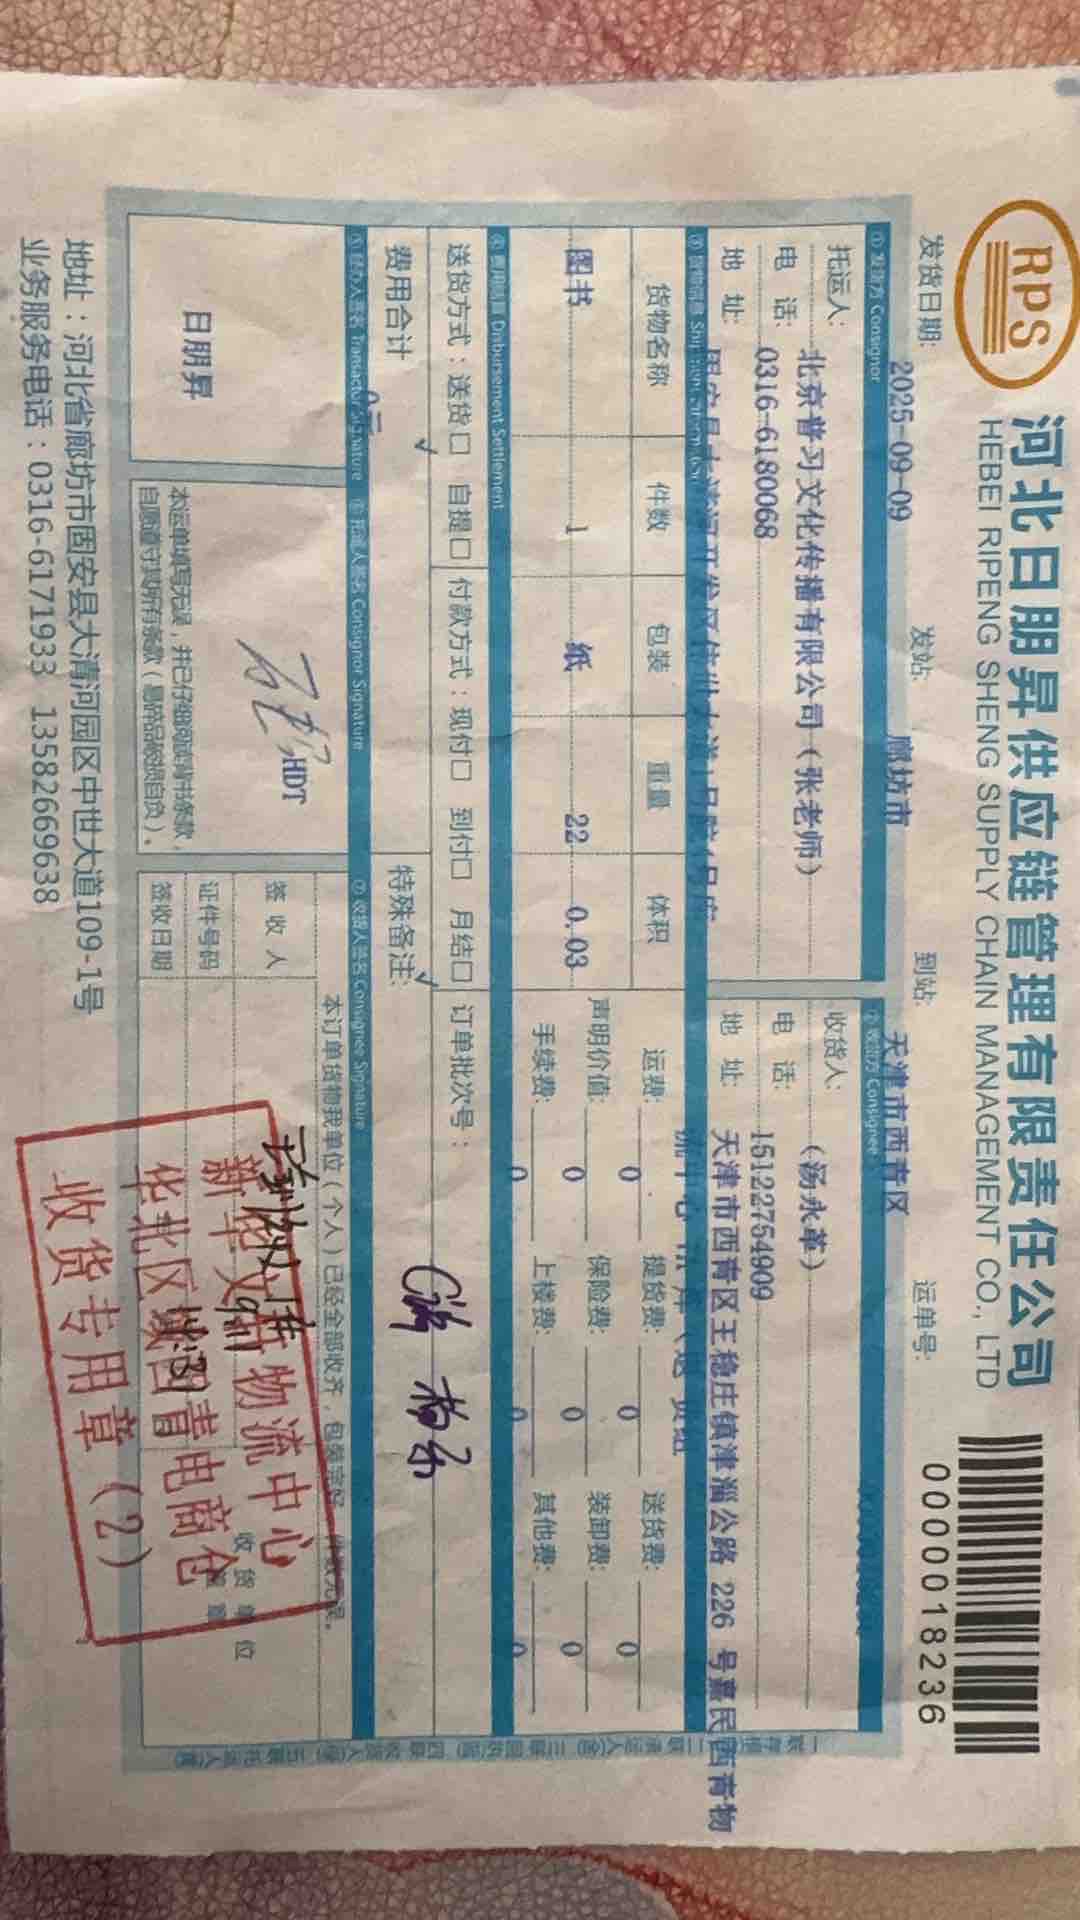 RPS
河北日朋昇供应链管理有限责任公司
HEBEI RIPENG SHENG SUPPLY CHAIN MANAGEMENT CO., LTD
0000018236
发货日期: 2025-09-09 发站: 廊坊市 到站: 天津市西青区 运单号:
① 发货方 Consignor
② 收货方 Consignee
托运人: 北京普习文化传播有限公司 (张老师)
收货人: (汤永革)
电 话: 0316-6180068
电 话: 15122754909
地 址:
地 址: 天津市西青区王稳庄镇津淄公路 226 号嘉民西青物
货物名称 件数 包装 重量 体积
图书 1 纸 22 0.03
运费: 0 提货费: 0 送货费: 0
声明价值: 0 保险费: 0 装卸费: 0
手续费: 0 上楼费: 0 其他费: 0
④ 费用结算 Disbursement Settlement
送货方式：送货口 自提口 付款方式：现付口 到付口 月结口 订单批次号：
费用合计 0元
特殊备注:
⑤ 经办人签名 Transactor Signature
⑥ 托运人签名 Consignor Signature
⑦ 收货人签名 Consignee Signature
日朋昇
HDT
本运单填写无误，并已仔细阅读背书条款，
自愿遵守其所有条款
本订单货物我单位（个人）已经全部收齐，包装完好，件数无误。
签 收 人
证件号码
签收日期
收 货 单 位
新华文轩物流中心
华北区域图书电商仓
收货专用章（2）
地址：河北省廊坊市固安县大清河园区中世大道109-1号
业务服务电话：0316-6171933 13582669638